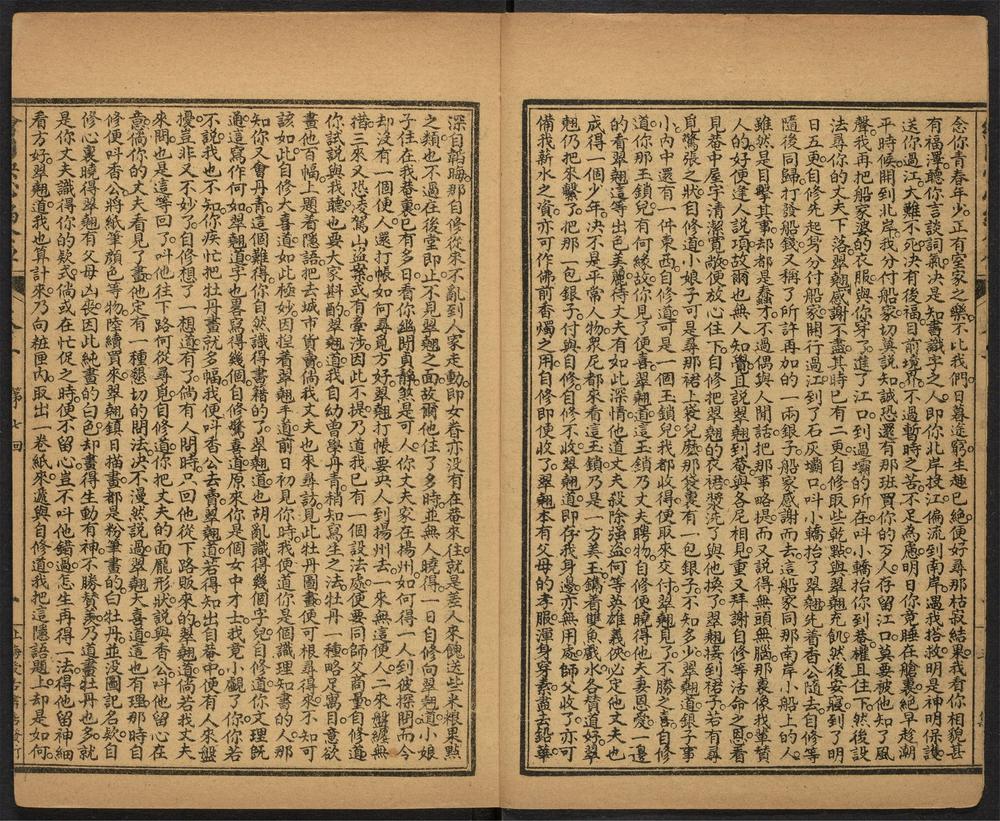 念你青春年少。正有室家之樂。不比我們。日暮途窮。生趣已絕。便好尋那枯寂結果。我看你相貌甚
有福澤。聽你言談詞氣。決是知書識字之人。即你北岸投江。偏流到南岸。遇我搭救。明是神明保護
送你過江。大難不死。決有後福。目前境界。不過暫時之苦。不足為慮。明日你竟睡在艙裏。絕早趁潮
平時候。開到北岸。我分付船家。切莫說知。誠恐還有那班買你的歹人。存留江口。莫要被他知了風
聲。我再把船家婆的衣服。與你穿了。進了江口。到過壩的所在。叫小轎抬你。到巷權且住下。然後設
法尋你的丈夫下落。翠翹感謝不盡。其時已有二更。自修取些乾點。與翠翹充飢。然後安寢。到了明
日五更。自修先起。分付船家開行。過江到了石灰壩口。叫小轎抬了翠翹。先着香公隨去。自修等
隨後同歸。打發船錢。又稱了所許再加的一兩銀子。船家感謝而去。這船家同那南岸小船上的人。
雖然是目擊其事。却都是蠢才。不過偶與人閒話。把那事略提。而又說得無頭無腦。那裏像我輩贊
人的好。便逢人說項。故爾也無人知覺。且說翠翹到菴。與各尼相見。重又拜謝自修等活命之恩。看
見菴中屋宇清潔寬敞。便放心住下。自修把翠翹的衣裙漿洗了與他換了。翠翹接到裙子。若有尋
覓驚張之狀。自修道。小娘子可是尋那裙上袋兒麽。那袋裏有一包銀子。不知多少。翠翹道。銀子事
小。內中還有一件東西。自修道。可是一個玉鎖兒。我都收得。便取來交付。翠翹見了。不勝之喜。自修
道。你那玉鎖兒有何緣故。你見了便喜。翠翹道。這玉鎖乃丈夫聘物。自修便曉得他夫妻恩愛。一邊
的看翠翹這等出色美麗。待丈夫有如此深情。他道丈夫殺除強盜。何等英雄義俠。必定他丈夫也
成得一個少年。決不是平常人物。衆尼都來看這玉鎖。乃是一方美玉。鐫着雙魚戲水。各贊道好。翠
翹仍把來繫了。把那一包銀子付與自修。自修不收。翠翹道。即存我身邊。亦無用處。師父收了。亦可
備我薪水之資。亦可作佛前香燭之用。自修即便收了。翠翹本有父母的孝服。渾身穿素。盡去鉛華。
深自韜晦。那自修從來不亂到人家走動。即女眷亦沒有在菴來往。就是差人來餽送些米糧果點
之類。也不過在後堂即止。不見翠翹之面。故爾他住了多時。並無人曉得。一日自修向翠翹道。小娘
子住在我菴裏。已有多日。看你幽閒貞靜。煞是可人。你丈夫家在楊州。如何得一人到彼探聞。而今
却沒有一個便人。還打帳如何尋覓方好。翠翹打帳要央人到揚州去。一來無這便人。二來盤纏無
措。三來又恐凌駕山盜案。或有牽涉。因此不提。乃道。我已有一個設法處。便要同師父商量。自修道
你試說與我聽。也要大家斟酌。翠翹道。我自幼曾學丹青。稍知寫生之法。牡丹一種。略足寓目。意欲
畫他百幅。上題着隱語。把去城市貨賣。倘我丈夫也來尋訪。見此牡丹圖畫。便可根尋得來。不知可
該如此。自修大喜道。如此極妙。因捏着翠翹手道。前日初見你時。我便道你是個識理知書的人。那
知你又會丹青。這個難得。你自然識得書籍的了。翠翹道。也胡亂識得幾個字兒。自修道。你文理旣
通。這寫作何如。翠翹道。字也畧寫得幾個。自修驚喜道。原來你是個女中才士。我竟小覷了你。你若
不說。我也不知。你疾忙把牡丹畫就多幅。我便叫香公去賣。翠翹道。若得知出自菴中。便有人來盤
擾。豈非又不妙了。自修想了一想道。有了。倘有人問時。只回他從下路販來的。翠翹道。倘若我丈夫
來問。也是這等回了。叫他往下路何從尋覓。自修道。你丈夫的面龐形狀。說與香公。叫他留心在
意。倘你的丈夫看見了畫。他定有一種懇切的問法。決不漫然說過。翠翹大喜道。這也有理。那時自
修便叫香公將紙筆顏色等物。陸續買來。翠翹鎮日描畫。都是粉筆畫的白牡丹。並沒圖記名欵。自
修心裏曉得翠翹有父母凶喪。因此純畫的白色。却畫得生動有神。不勝賛羨。乃道。畫牡丹也多就。
是你丈夫識得你的欵式。倘或在忙促之時。便不留心。豈不叫他錯過。怎生再得一法。得他留神細
看方好。翠翹道。我也算計來。乃向粧匣內取出一卷紙來。遞與自修道。我把這隱語題上。却是如何。
第七回